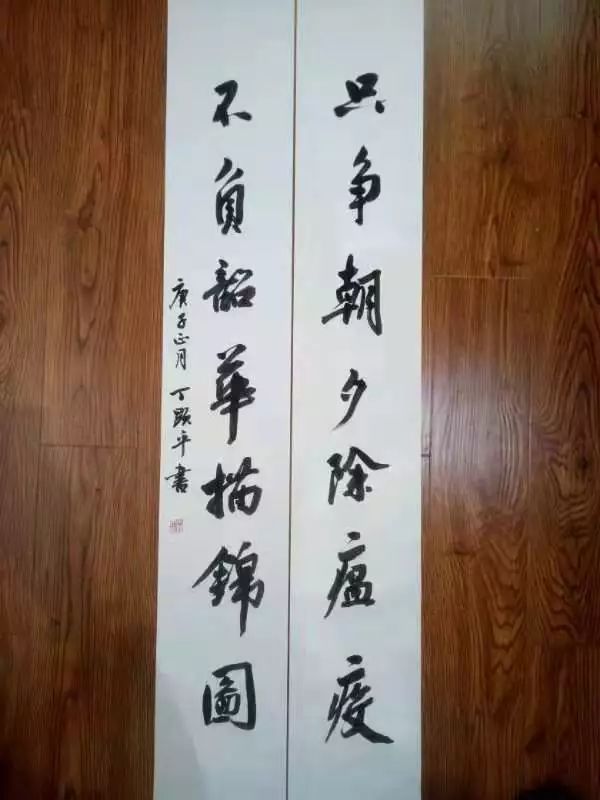 只争朝夕除瘟疫
不負韶華描錦圖
庚子正月丁顯平書